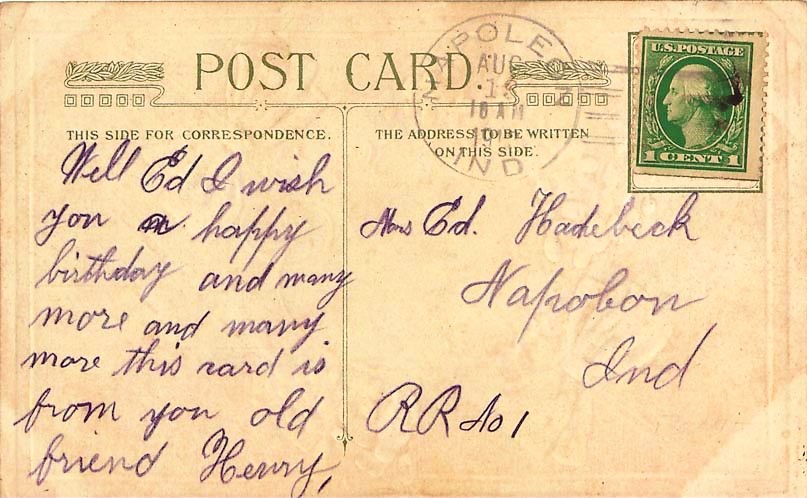 POST CARD
NAPOLEON
AUG
10 AM
IND
U.S. POSTAGE
1 CENT 1
THIS SIDE FOR CORRESPONDENCE.
THE ADDRESS TO BE WRITTEN
ON THIS SIDE.
Well Ed I wish
you a happy
birthday and many
more and many
more this card is
from you old
friend Henry,
Ed. Hadebeck
Napoleon
Ind
RR No 1